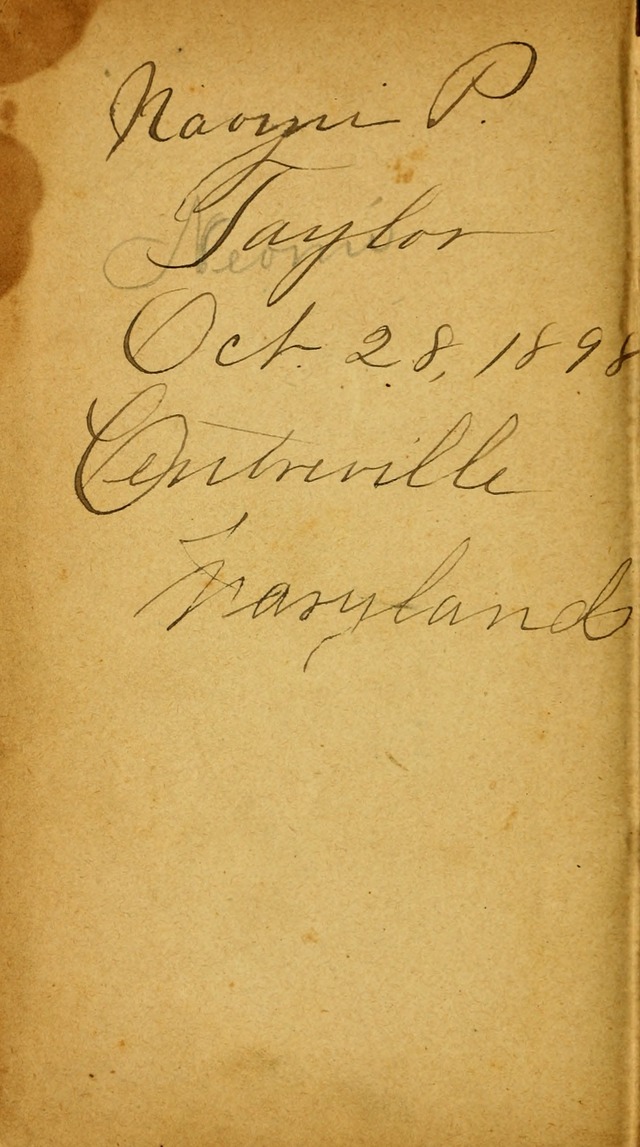 Naomi P.
Taylor
Oct. 28, 1898
Centreville
Maryland